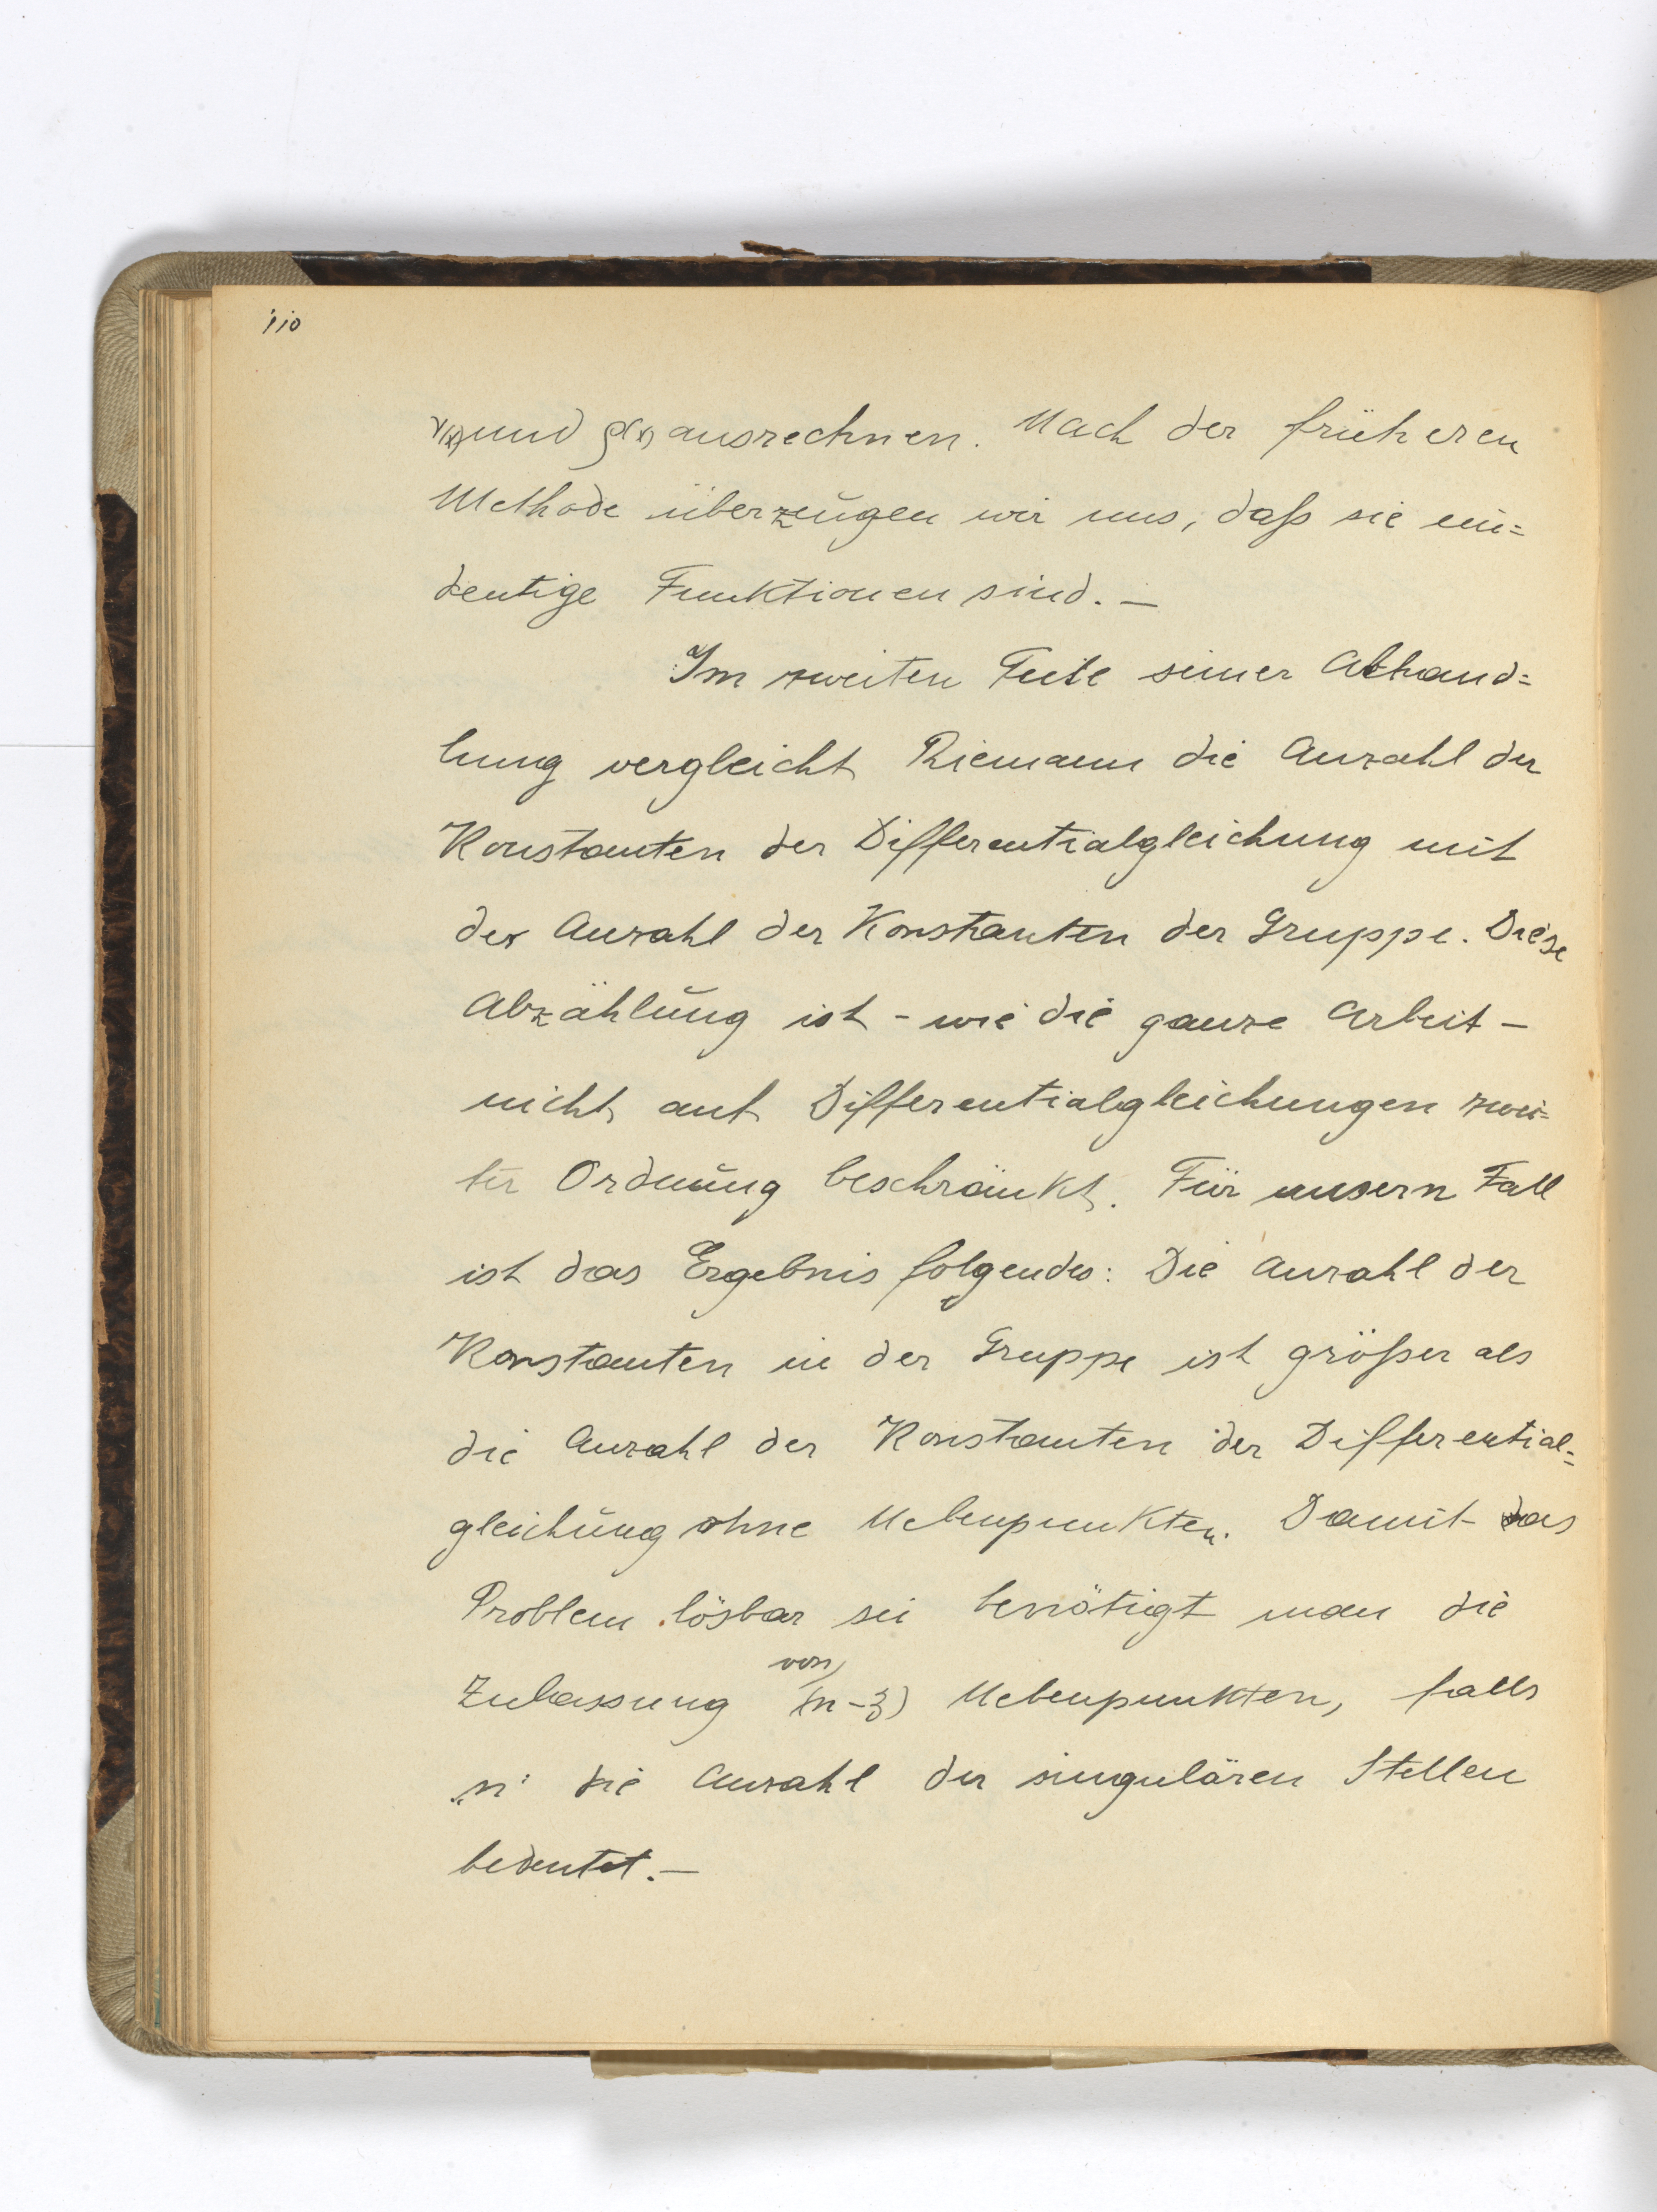 110
r(x) und ρ(x) ausrechnen. Nach der früheren
Methode überzeugen wir uns, daß sie ein=
deutige Funktionen sind. —
Im zweiten Teile seiner Abhand=
lung vergleicht Riemann die Anzahl der
Konstanten der Differentialgleichung mit
der Anzahl der Konstanten der Gruppe. Diese
Abzählung ist - wie die ganze Arbeit -
nicht auf Differentialgleichungen zwei=
ter Ordnung beschränkt. Für unsern Fall
ist das Ergebnis folgendes: Die Anzahl der
Konstanten in der Gruppe ist größer als
die Anzahl der Konstanten der Differential=
gleichung ohne Nebenpunkten. Damit das
Problem lösbar sei benötigt man die
Zulassung von (n-3) Nebenpunkten, falls
„n" die Anzahl der singulären Stellen
bedeutet. —